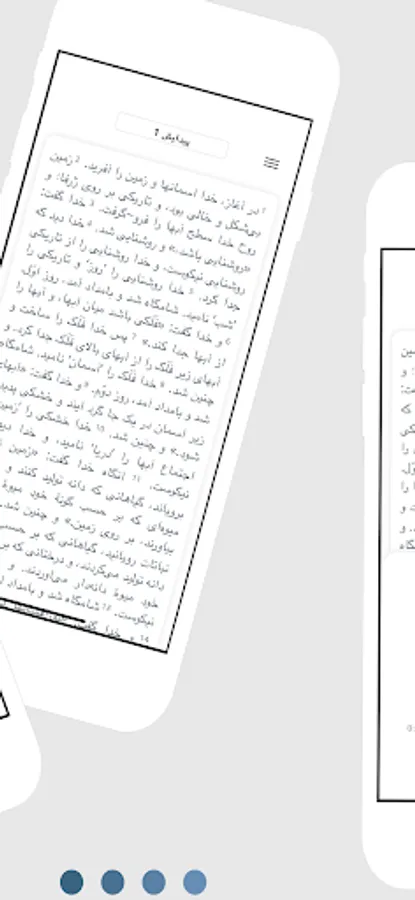 پیدایش 1
1 در آغاز، خدا آسمانها و زمین را آفرید. 2 زمین
بی‌شکل و خالی بود، و تاریکی بر روی ژرفا؛ و
روح خدا سطح آبها را فرو-گرفت. 3 خدا گفت:
«روشنایی باشد،» و روشنایی شد. 4 خدا دید که
روشنایی نیکوست، و خدا روشنایی را از تاریکی
جدا کرد. 5 خدا روشنایی را 'روز' و تاریکی را
'شب' نامید. شامگاه شد و بامداد آمد، روز اوّل.
6 و خدا گفت: «فَلَکی باشد میان آبها، و آبها را
از آبها جدا کند.» 7 پس خدا فَلَک را ساخت و
آبهای زیر فَلَک را از آبهای بالای فَلَک جدا کرد. و
چنین شد. 8 خدا فَلَک را 'آسمان' نامید. شامگاه
شد و بامداد آمد، روز دوّم. 9 و خدا گفت: «آبهای
زیر آسمان در یک جا گرد آیند و خشکی پدید
شود.» و چنین شد. 10 خدا خشکی را 'زمین
اجتماع آبها را 'دریا' نامید. و خدا دید
نیکوست. 11 آنگاه خدا گفت: «زمین
برویاند، گیاهانی که دانه تولید کنند و
میوه‌ای که بر حسب گونۀ خود میوۀ
بیاورند، بر روی زمین.» و چنین شد.
نباتات رویانید، گیاهانی که بر حسب
دانه تولید می‌کردند، و درختانی که بر
خود میوۀ دانه‌دار می‌آوردند. و
نیکوست. 13 شامگاه شد و بامداد
14 و خدا گفت: